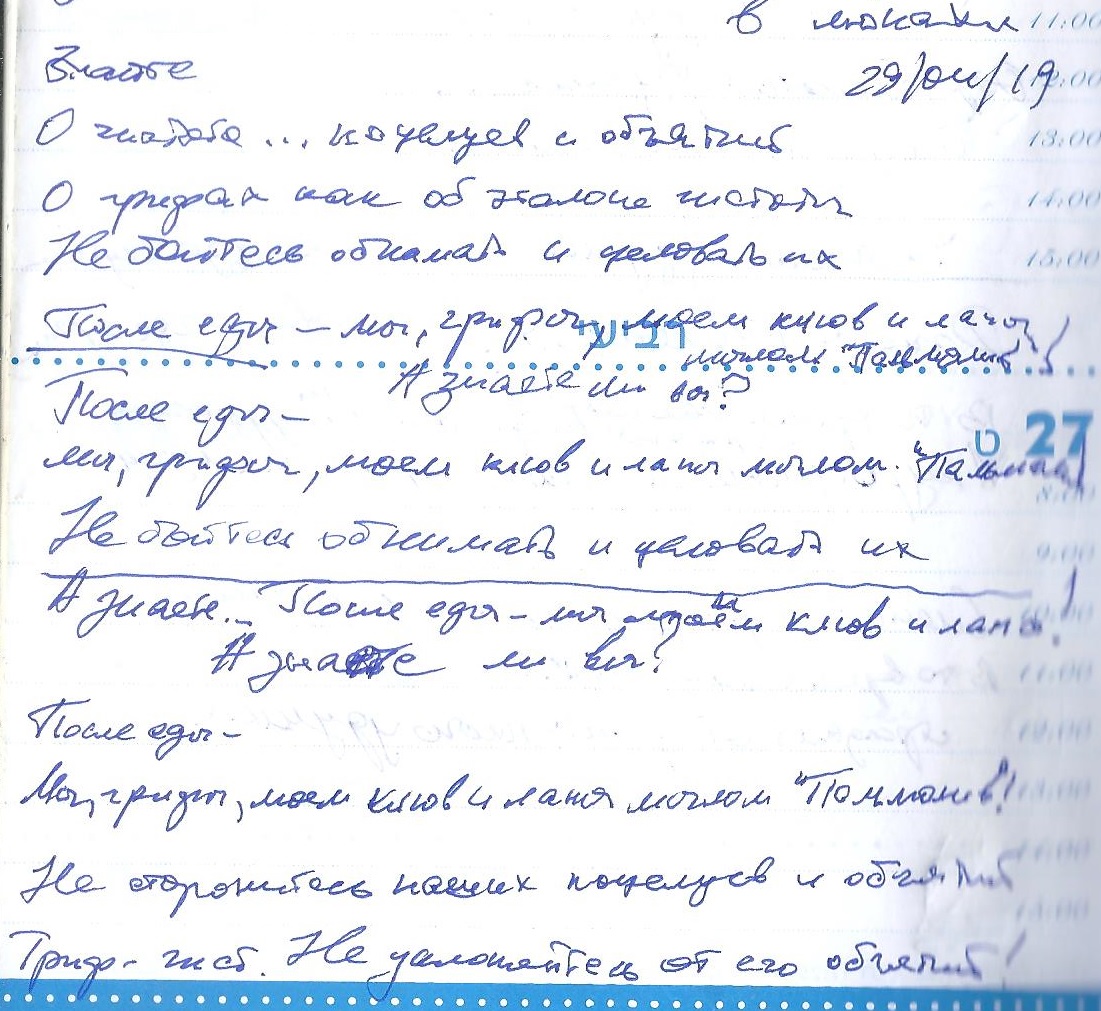 в
11:00
Знаете
29/  /19
О чистоте... поцелуев и объятий
13:00
О грифах как об эталоне чистоты
14:00
Не бойтесь обнимать и целовать их
15:00
После еды – мы, грифы, моем клюв и лапы
רביעי
мылом "Пальмолив"!
А знаете ли вы?
После еды –
ט 27
мы, грифы, моем клюв и лапы мылом "Пальмолив"
8:00
Не бойтесь обнимать и целовать их
9:00
А знаете... После еды – мы моем клюв и лапы!
А знаете ли вы?
11:00
После еды –
12:00
Мы, грифы, моем клюв и лапы мылом "Пальмолив"!
13:00
Не сторонитесь наших поцелуев и объятий
15:00
Гриф – чист. Не уклоняйтесь от его объятий!